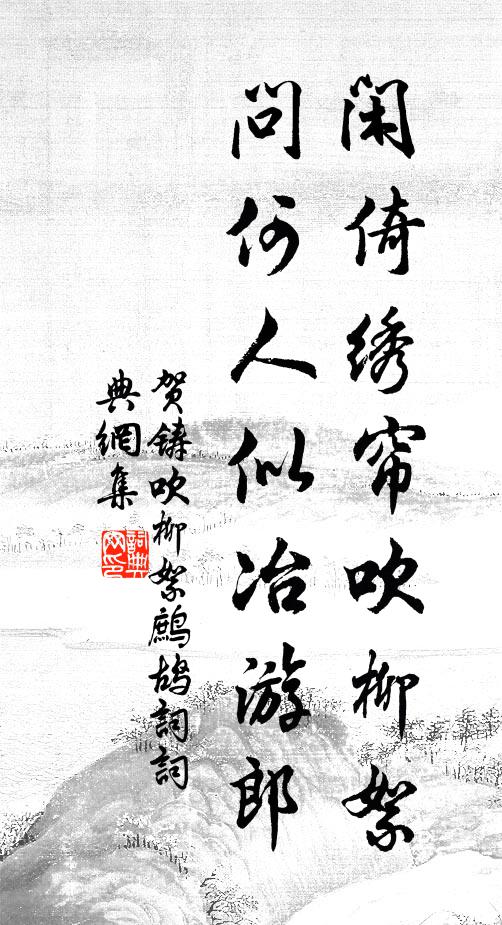 闲倚绣帘吹柳絮
问何人似冶游郎
贺铸吹柳絮鹧鸪词词
典網集
詞典網印